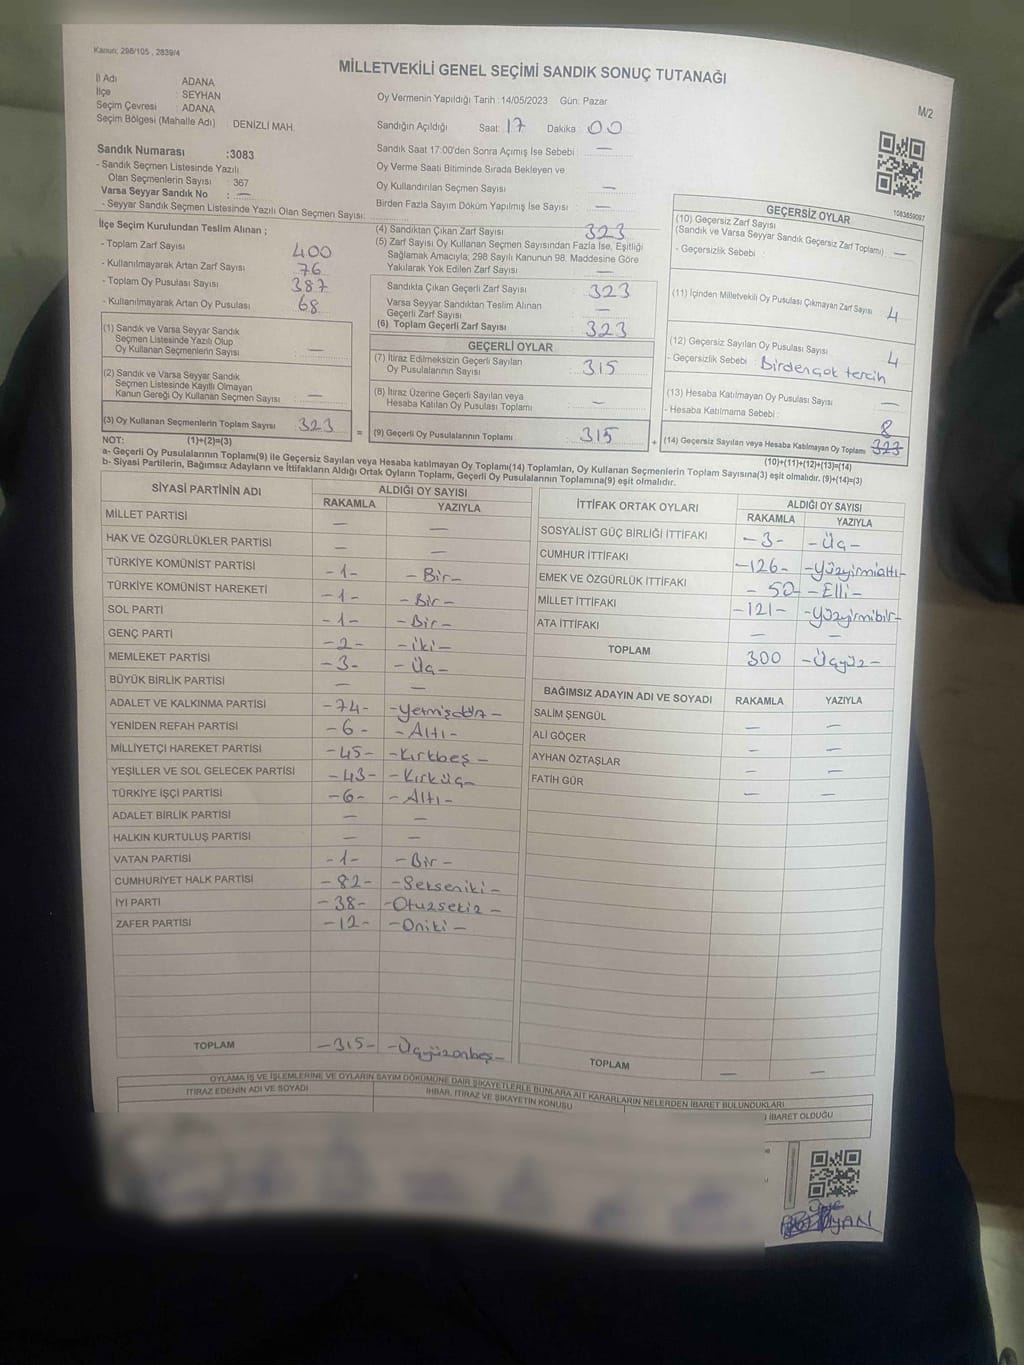 Kanun; 298/105 , 2839/4
MİLLETVEKİLİ GENEL SEÇİMİ SANDIK SONUÇ TUTANAĞI
M/2
İl Adı ADANA
İlçe : SEYHAN
Seçim Çevresi : ADANA
Seçim Bölgesi (Mahalle Adı) : DENİZLİ MAH.
Sandık Numarası :3083
- Sandık Seçmen Listesinde Yazılı
Olan Seçmenlerin Sayısı : 367
Varsa Seyyar Sandık No : —
- Seyyar Sandık Seçmen Listesinde Yazılı Olan Seçmen Sayısı:
Oy Vermenin Yapıldığı Tarih :14/05/2023 Gün: Pazar
Sandığın Açıldığı Saat: 17 Dakika : 00
Sandık Saat 17:00'den Sonra Açımış İse Sebebi : —
Oy Verme Saati Bitiminde Sırada Bekleyen ve
Oy Kullandırılan Seçmen Sayısı —
Birden Fazla Sayım Döküm Yapılmış İse Sayısı : —
1083659097
İlçe Seçim Kurulundan Teslim Alınan ;
- Toplam Zarf Sayısı 400
- Kullanılmayarak Artan Zarf Sayısı 76
- Toplam Oy Pusulası Sayısı : 387
- Kullanılmayarak Artan Oy Pusulası : 68
(1) Sandık ve Varsa Seyyar Sandık
Seçmen Listesinde Yazılı Olup
Oy Kullanan Seçmenlerin Sayısı : —
(2) Sandık ve Varsa Seyyar Sandık
Seçmen Listesinde Kayıtlı Olmayan
Kanun Gereği Oy Kullanan Seçmen Sayısı : —
(3) Oy Kullanan Seçmenlerin Toplam Sayısı 323
(4) Sandıktan Çıkan Zarf Sayısı : 323
(5) Zarf Sayısı Oy Kullanan Seçmen Sayısından Fazla İse, Eşitliği
Sağlamak Amacıyla; 298 Sayılı Kanunun 98. Maddesine Göre
Yakılarak Yok Edilen Zarf Sayısı : —
Sandıkla Çıkan Geçerli Zarf Sayısı : 323
Varsa Seyyar Sandıktan Teslim Alınan
Geçerli Zarf Sayısı : —
(6) Toplam Geçerli Zarf Sayısı : 323
GEÇERLİ OYLAR
(7) İtiraz Edilmeksizin Geçerli Sayılan
Oy Pusulalarının Sayısı : 315
(8) İtiraz Üzerine Geçerli Sayılan veya
Hesaba Katılan Oy Pusulası Toplamı : —
= (9) Geçerli Oy Pusulalarının Toplamı : 315 +
GEÇERSİZ OYLAR
(10) Geçersiz Zarf Sayısı
(Sandık ve Varsa Seyyar Sandık Geçersiz Zarf Toplamı) : —
- Geçersizlik Sebebi :
(11) İçinden Milletvekili Oy Pusulası Çıkmayan Zarf Sayısı : 4
(12) Geçersiz Sayılan Oy Pusulası Sayısı : 4
- Geçersizlik Sebebi : Birden çok tercih
(13) Hesaba Katılmayan Oy Pusulası Sayısı : —
- Hesaba Katılmama Sebebi :
8
(14) Geçersiz Sayılan veya Hesaba Katılmayan Oy Toplamı 323
(10)+(11)+(12)+(13)=(14)
NOT: (1)+(2)=(3)
a- Geçerli Oy Pusulalarının Toplamı(9) ile Geçersiz Sayılan veya Hesaba katılmayan Oy Toplamı(14) Toplamları, Oy Kullanan Seçmenlerin Toplam Sayısına(3) eşit olmalıdır. (9)+(14)=(3)
b- Siyasi Partilerin, Bağımsız Adayların ve İttifakların Aldığı Ortak Oyların Toplamı, Geçerli Oy Pusulalarının Toplamına(9) eşit olmalıdır.
SİYASİ PARTİNİN ADI ALDIĞI OY SAYISI
RAKAMLA YAZIYLA
MİLLET PARTİSİ — —
HAK VE ÖZGÜRLÜKLER PARTİSİ — —
TÜRKİYE KOMÜNİST PARTİSİ -1- -Bir-
TÜRKİYE KOMÜNİST HAREKETİ -1- -Bir-
SOL PARTİ -1- -Bir-
GENÇ PARTİ -2- -iki-
MEMLEKET PARTİSİ -3- -Üç-
BÜYÜK BİRLİK PARTİSİ — —
ADALET VE KALKINMA PARTİSİ -74- -Yetmişdört-
YENİDEN REFAH PARTİSİ -6- -Altı-
MİLLİYETÇİ HAREKET PARTİSİ -45- -Kırkbeş-
YEŞİLLER VE SOL GELECEK PARTİSİ -43- -Kırküç-
TÜRKİYE İŞÇİ PARTİSİ -6- -Altı-
ADALET BİRLİK PARTİSİ — —
HALKIN KURTULUŞ PARTİSİ — —
VATAN PARTİSİ -1- -Bir-
CUMHURİYET HALK PARTİSİ -82- -Sekseniki-
İYİ PARTİ -38- -Otuzsekiz-
ZAFER PARTİSİ -12- -Oniki-
TOPLAM -315- -Üçyüzonbeş-
İTTİFAK ORTAK OYLARI ALDIĞI OY SAYISI
RAKAMLA YAZIYLA
SOSYALİST GÜÇ BİRLİĞİ İTTİFAKI -3- -Üç-
CUMHUR İTTİFAKI -126- -Yüzyirmialtı-
EMEK VE ÖZGÜRLÜK İTTİFAKI -50- -Elli-
MİLLET İTTİFAKI -121- -Yüzyirmibir-
ATA İTTİFAKI — —
TOPLAM 300 -Üçyüz-
BAĞIMSIZ ADAYIN ADI VE SOYADI RAKAMLA YAZIYLA
SALİM ŞENGÜL — —
ALİ GÖÇER — —
AYHAN ÖZTAŞLAR — —
FATİH GÜR — —
TOPLAM — —
OYLAMA İŞ VE İŞLEMLERİNE VE OYLARIN SAYIM DÖKÜMÜNE DAİR ŞİKAYETLERLE BUNLARA AİT KARARLARIN NELERDEN İBARET BULUNDUKLARI
İTİRAZ EDENİN ADI VE SOYADI İHBAR, İTİRAZ VE ŞİKAYETİN KONUSU İBARET OLDUĞU
Üye